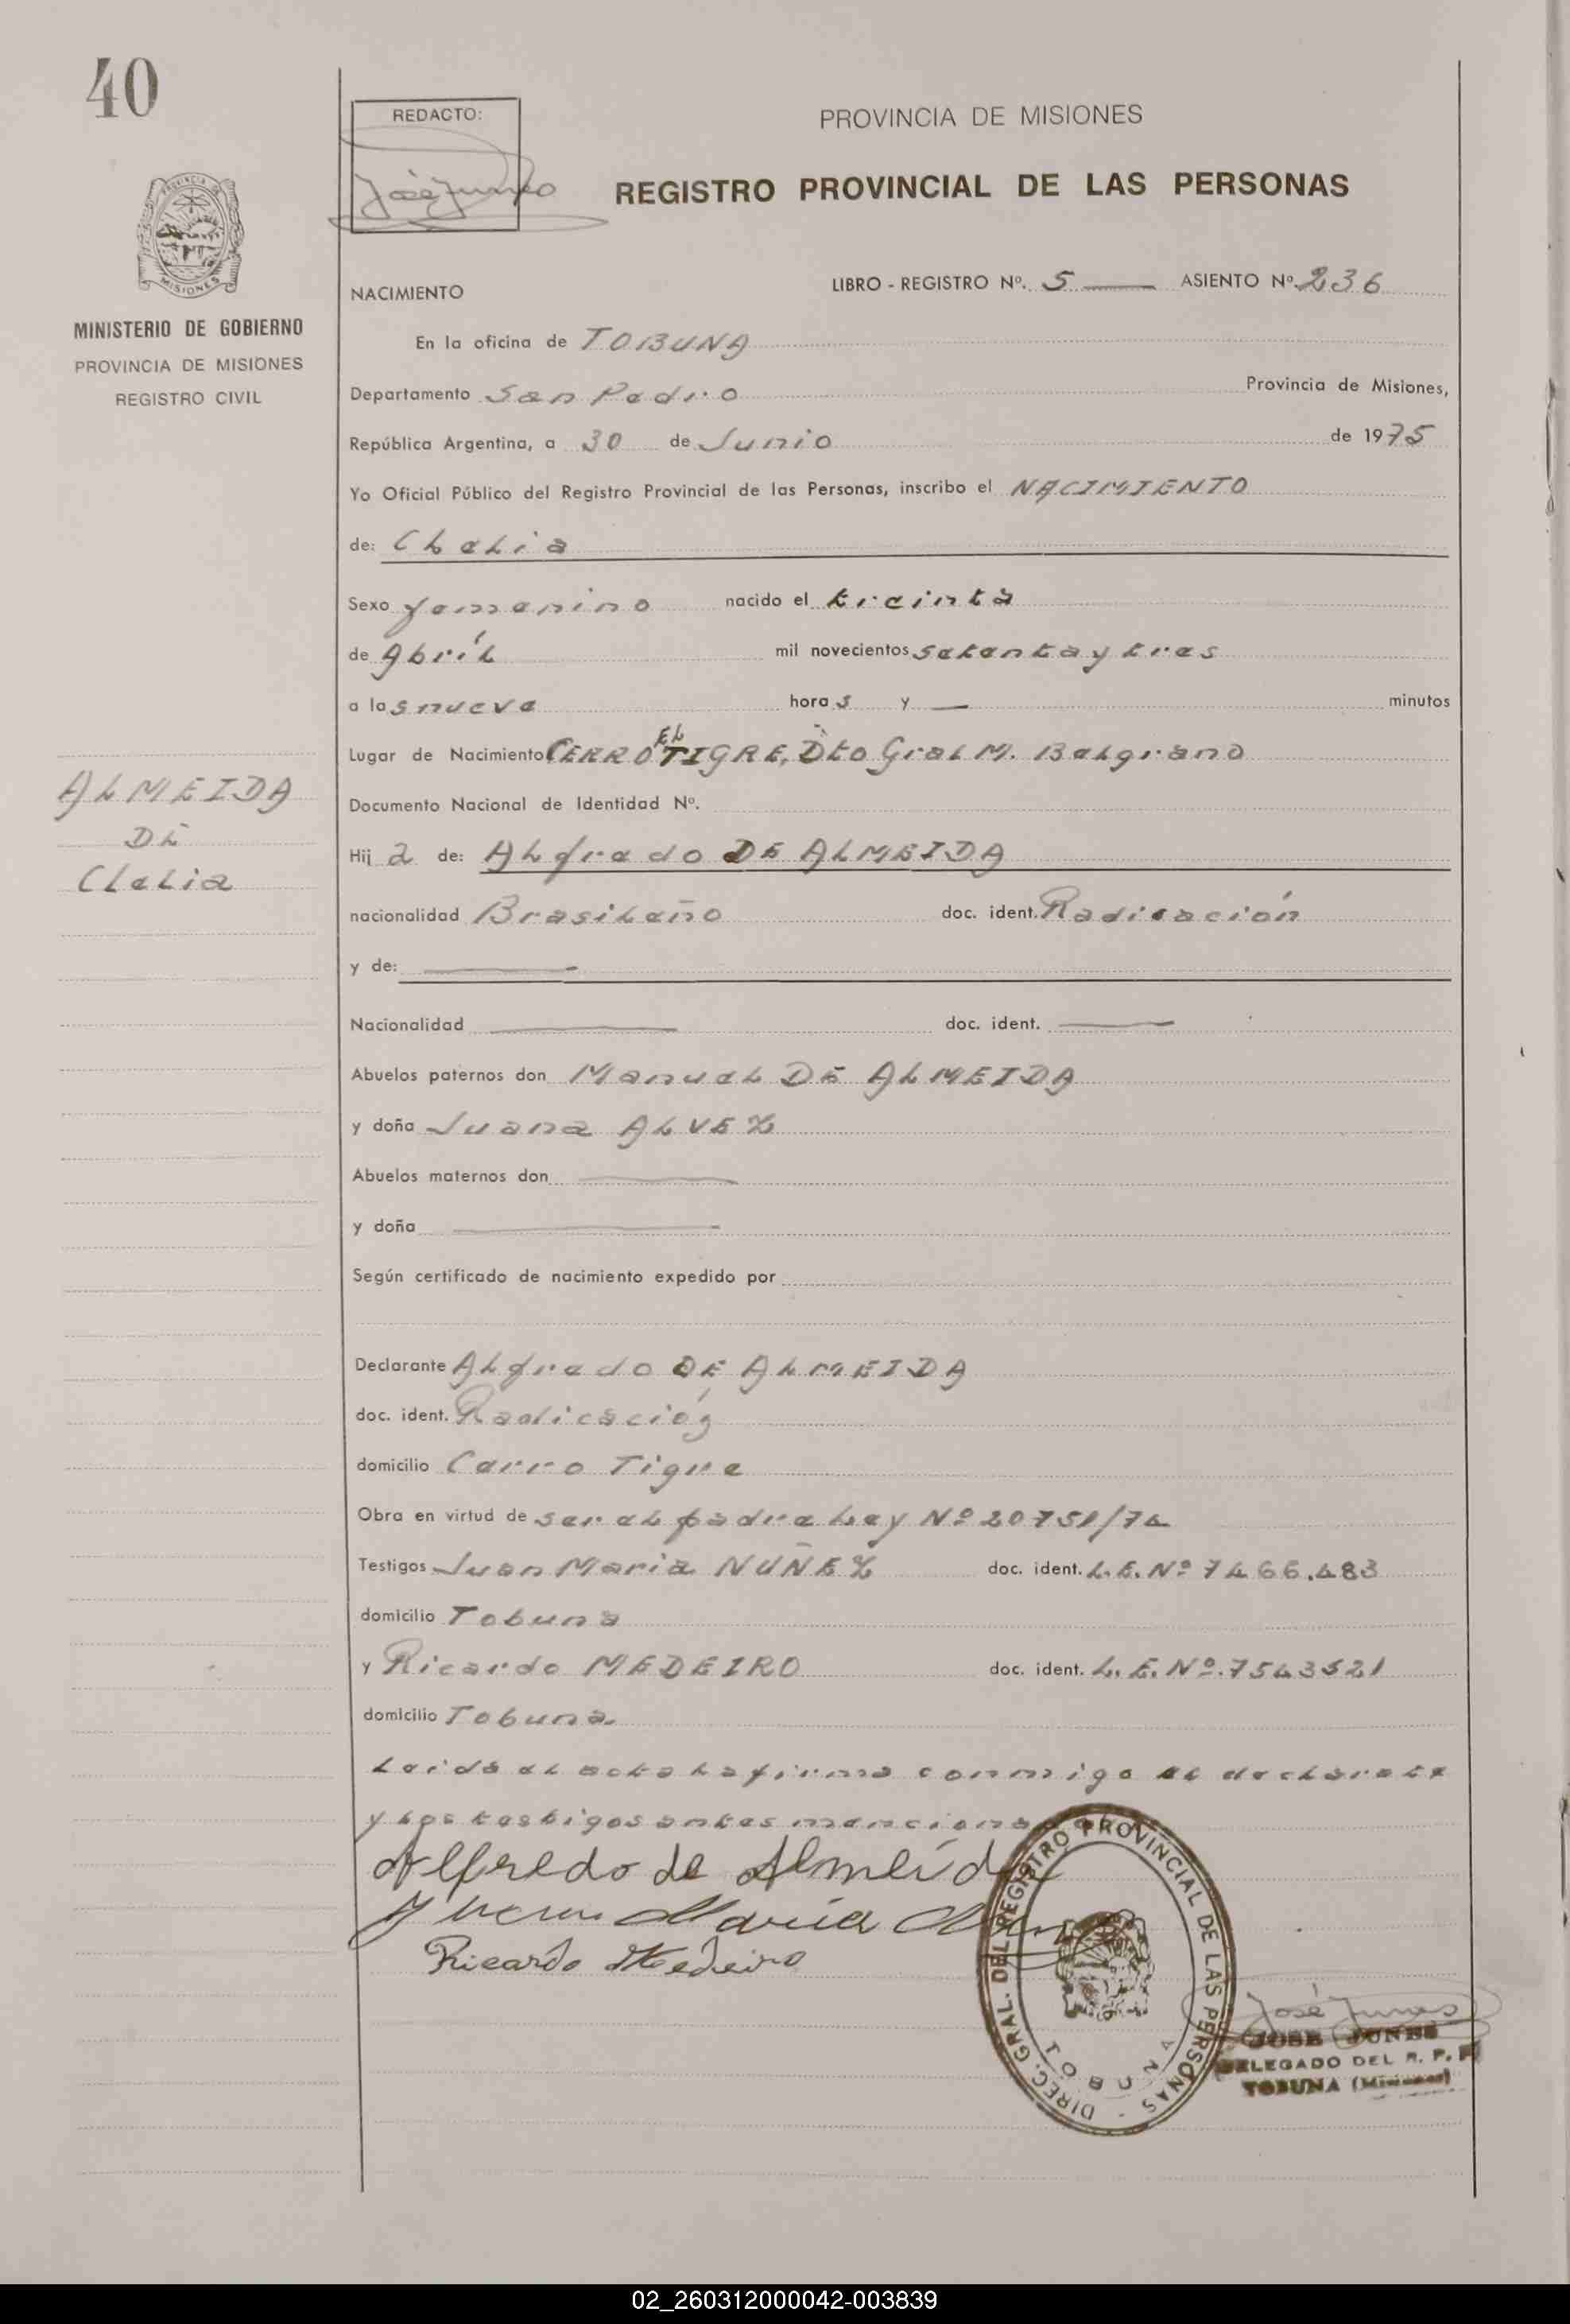 40
REDACTO:
José Junes
PROVINCIA DE MISIONES
REGISTRO PROVINCIAL DE LAS PERSONAS
PROVINCIA DE
MISIONES
MINISTERIO DE GOBIERNO
PROVINCIA DE MISIONES
REGISTRO CIVIL
NACIMIENTO
LIBRO - REGISTRO Nº. 5 — ASIENTO Nº 236
En la oficina de TOBUNA
Departamento San Pedro Provincia de Misiones,
República Argentina, a 30 de Junio de 1975
Yo Oficial Público del Registro Provincial de las Personas, inscribo el NACIMIENTO
de: Clelia
Sexo femenino nacido el treinta
de Abríl mil novecientos setenta y tres
a las nueve horas y — minutos
Lugar de Nacimiento CERRO EL TIGRE, Dto Gral M. Belgrano
Documento Nacional de Identidad Nº.
ALMEIDA
DE
Clelia
Hija de: Alfredo DE ALMEIDA
nacionalidad Brasileño doc. ident. Radicación
y de: —
Nacionalidad — doc. ident. —
Abuelos paternos don Manuel DE ALMEIDA
y doña Juana ALVEZ
Abuelos maternos don —
y doña —
Según certificado de nacimiento expedido por
Declarante Alfredo DE ALMEIDA
doc. ident. Radicación
domicilio Cerro Tigre
Obra en virtud de ser el padre Ley Nº 20751/74
Testigos Juan Maria NUÑEZ doc. ident. L.E. Nº 7466.483
domicilio Tobuna
y Ricardo MEDEIRO doc. ident. L.E. Nº. 7543521
domicilio Tobuna.
Leida el acta la firma conmigo el declarate
y los testigos antes
Alfredo de Almeida
Juan Maria
Ricardo Medeiro
DIREC. GRAL. DEL REGISTRO PROVINCIAL DE LAS PERSONAS -
TOBUNA
José Junes
JOSE JUNES
DELEGADO DEL R. P. P
TOBUNA (Misiones)
02_260312000042-003839